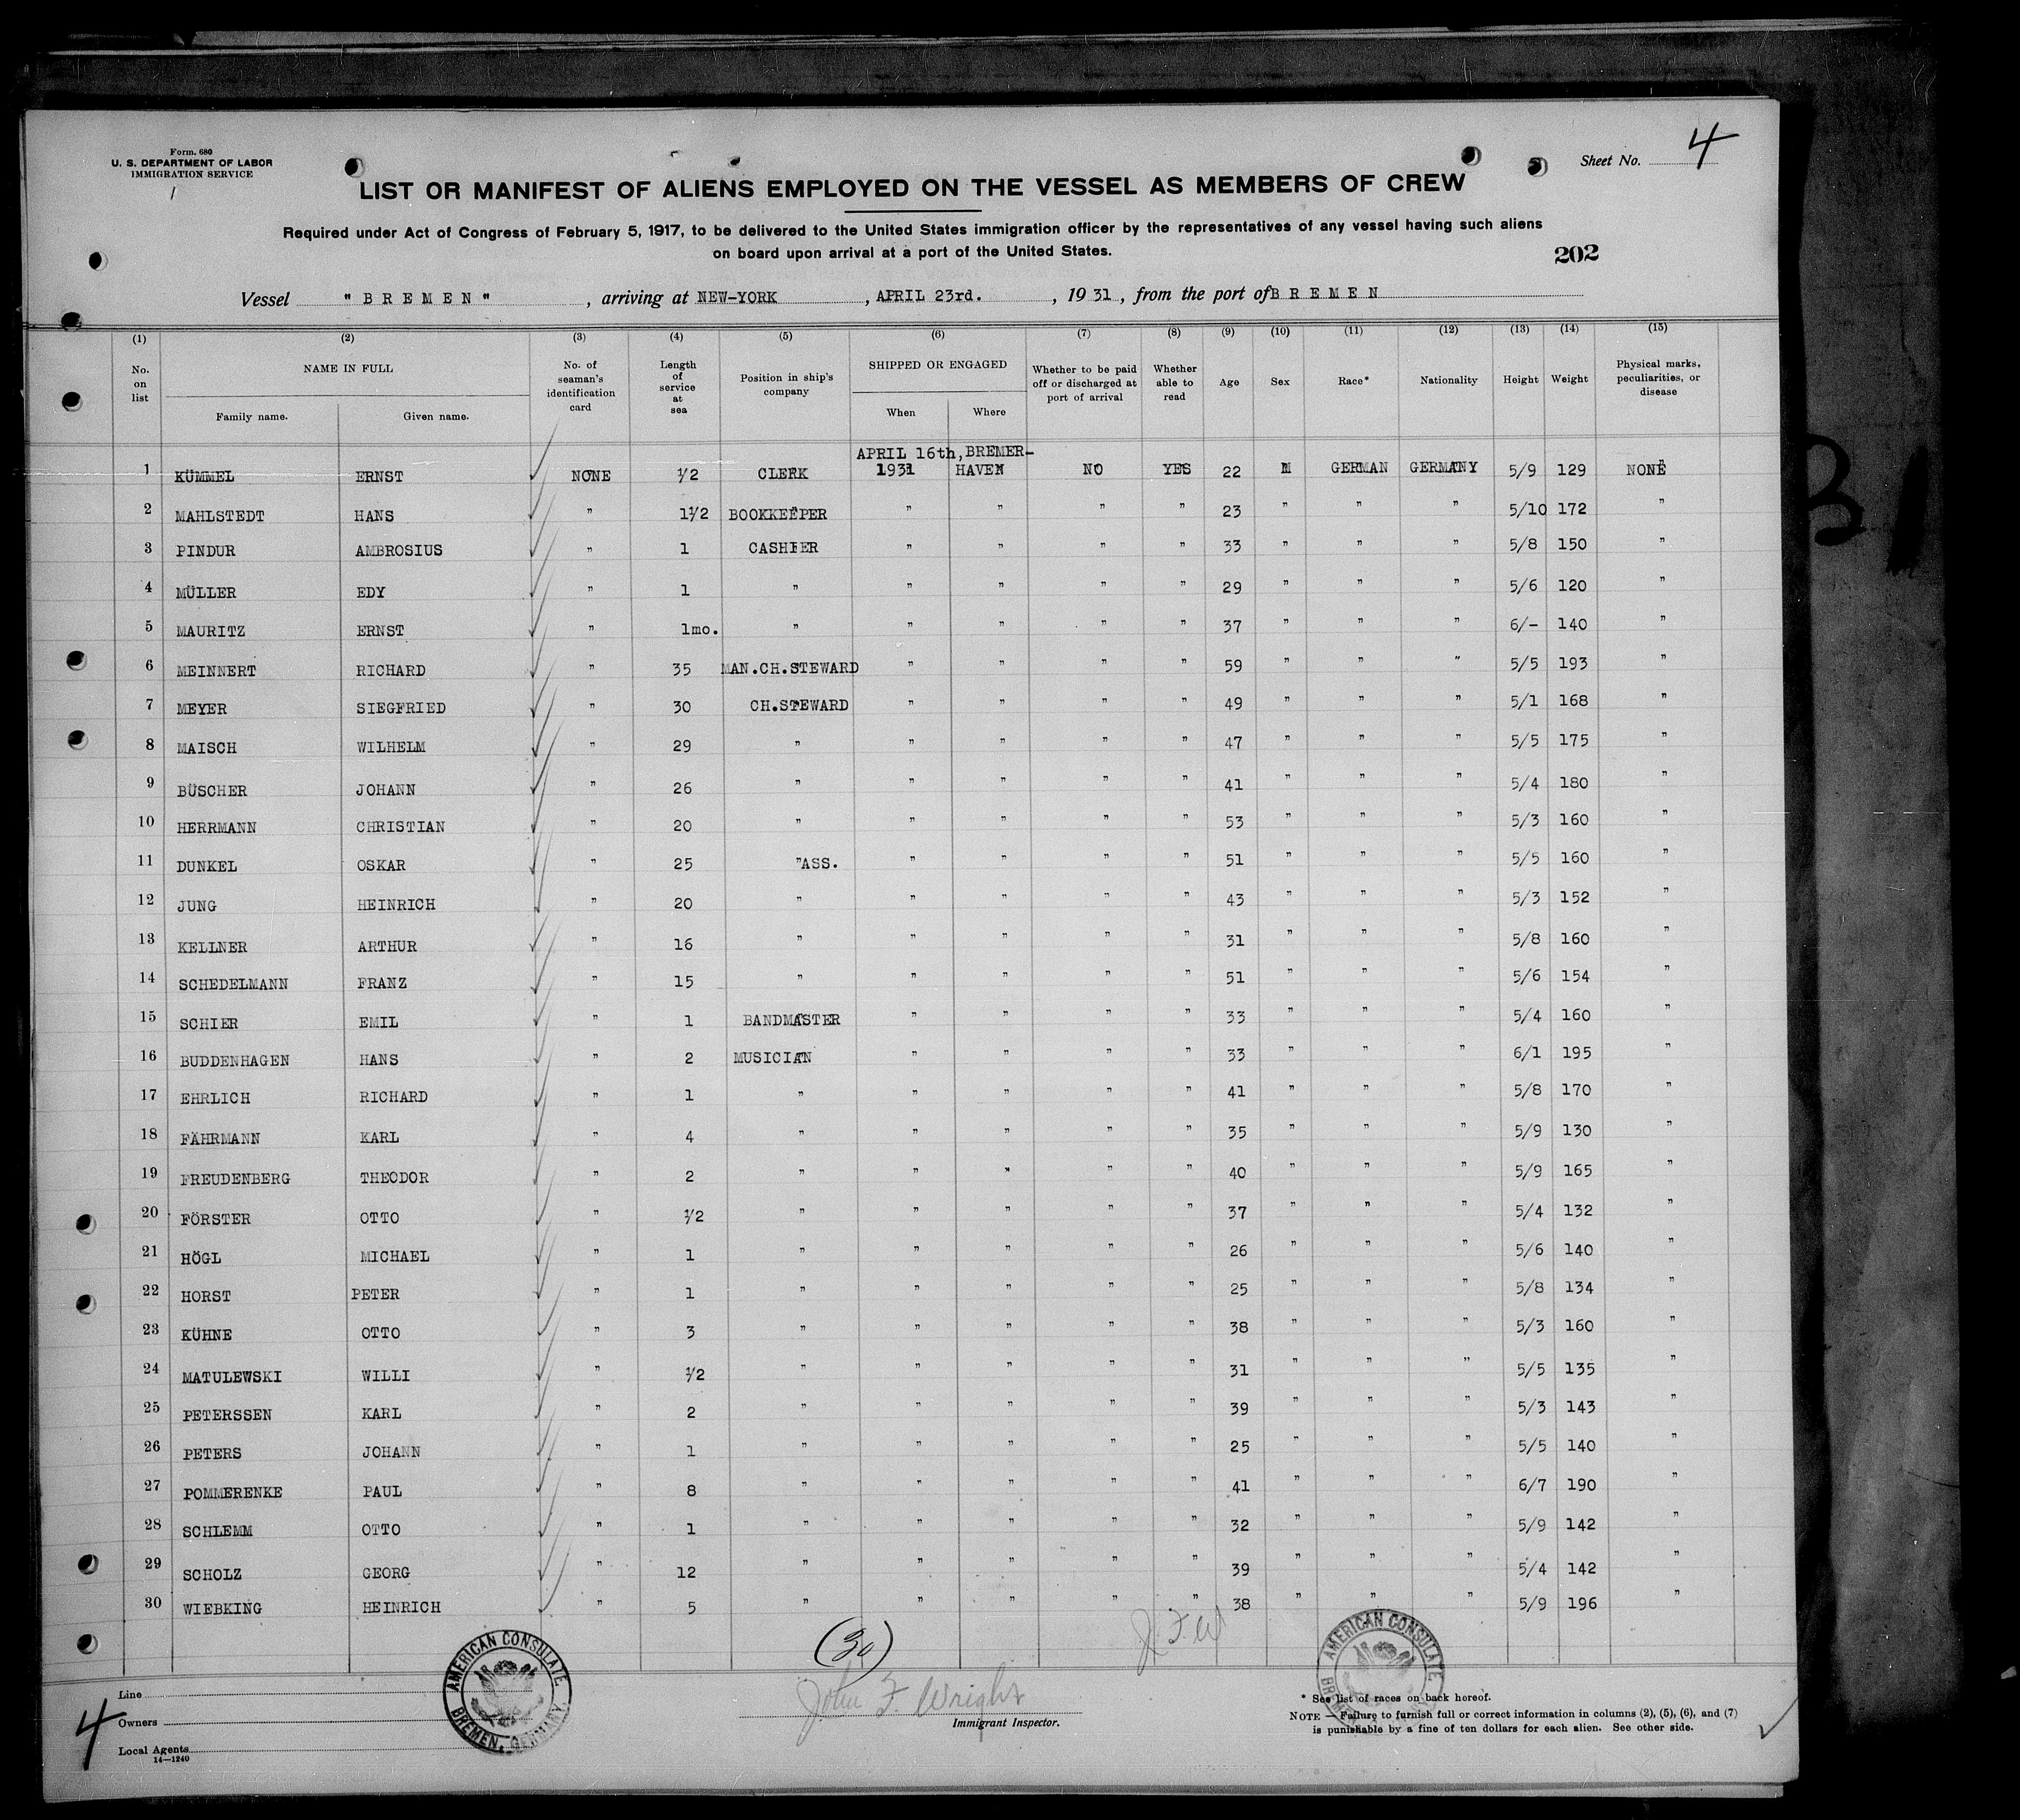 Form. 680
U. S. DEPARTMENT OF LABOR
IMMIGRATION SERVICE
Sheet No. 4
LIST OR MANIFEST OF ALIENS EMPLOYED ON THE VESSEL AS MEMBERS OF CREW
Required under Act of Congress of February 5, 1917, to be delivered to the United States immigration officer by the representatives of any vessel having such aliens
on board upon arrival at a port of the United States.
202
Vessel "BREMEN", arriving at NEW-YORK, APRIL 23rd., 1931, from the port of BREMEN
(1) (2) (3) (4) (5) (6) (7) (8) (9) (10) (11) (12) (13) (14) (15)
No. on list NAME IN FULL Family name. Given name. No. of seaman's identification card Length of service at sea Position in ship's company SHIPPED OR ENGAGED When Where Whether to be paid off or discharged at port of arrival Whether able to read Age Sex Race* Nationality Height Weight Physical marks, peculiarities, or disease
1 KÜMMEL ERNST NONE 1/2 CLERK APRIL 16th, 1931 BREMER-HAVEN NO YES 22 M GERMAN GERMANY 5/9 129 NONE
2 MAHLSTEDT HANS " 1 1/2 BOOKKEEPER " " " " 23 " " " 5/10 172 "
3 PINDUR AMBROSIUS " 1 CASHIER " " " " 33 " " " 5/8 150 "
4 MÜLLER EDY " 1 " " " " " 29 " " " 5/6 120 "
5 MAURITZ ERNST " 1mo. " " " " " 37 " " " 6/- 140 "
6 MEINNERT RICHARD " 35 MAN.CH.STEWARD " " " " 59 " " " 5/5 193 "
7 MEYER SIEGFRIED " 30 CH.STEWARD " " " " 49 " " " 5/1 168 "
8 MAISCH WILHELM " 29 " " " " " 47 " " " 5/5 175 "
9 BÜSCHER JOHANN " 26 " " " " " 41 " " " 5/4 180 "
10 HERRMANN CHRISTIAN " 20 " " " " " 53 " " " 5/3 160 "
11 DUNKEL OSKAR " 25 "ASS. " " " " 51 " " " 5/5 160 "
12 JUNG HEINRICH " 20 " " " " " 43 " " " 5/3 152 "
13 KELLNER ARTHUR " 16 " " " " " 31 " " " 5/8 160 "
14 SCHEDELMANN FRANZ " 15 " " " " " 51 " " " 5/6 154 "
15 SCHIER EMIL " 1 BANDMASTER " " " " 33 " " " 5/4 160 "
16 BUDDENHAGEN HANS " 2 MUSICIAN " " " " 33 " " " 6/1 195 "
17 EHRLICH RICHARD " 1 " " " " " 41 " " " 5/8 170 "
18 FÄHRMANN KARL " 4 " " " " " 35 " " " 5/9 130 "
19 FREUDENBERG THEODOR " 2 " " " " " 40 " " " 5/9 165 "
20 FÖRSTER OTTO " 1/2 " " " " " 37 " " " 5/4 132 "
21 HÖGL MICHAEL " 1 " " " " " 26 " " " 5/6 140 "
22 HORST PETER " 1 " " " " " 25 " " " 5/8 134 "
23 KÜHNE OTTO " 3 " " " " " 38 " " " 5/3 160 "
24 MATULEWSKI WILLI " 1/2 " " " " " 31 " " " 5/5 135 "
25 PETERSSEN KARL " 2 " " " " " 39 " " " 5/3 143 "
26 PETERS JOHANN " 1 " " " " " 25 " " " 5/5 140 "
27 POMMERENKE PAUL " 8 " " " " " 41 " " " 6/7 190 "
28 SCHLEMM OTTO " 1 " " " " " 32 " " " 5/9 142 "
29 SCHOLZ GEORG " 12 " " " " " 39 " " " 5/4 142 "
30 WIEBKING HEINRICH " 5 " " " " " 38 " " " 5/9 196 "
(30)
J. F. W
AMERICAN CONSULATE BREMEN, GERMANY.
AMERICAN CONSULATE
Line
Owners
Local Agents
14—1240
4
John F. Wright
Immigrant Inspector.
* See list of races on back hereof.
NOTE — Failure to furnish full or correct information in columns (2), (5), (6), and (7)
is punishable by a fine of ten dollars for each alien. See other side.